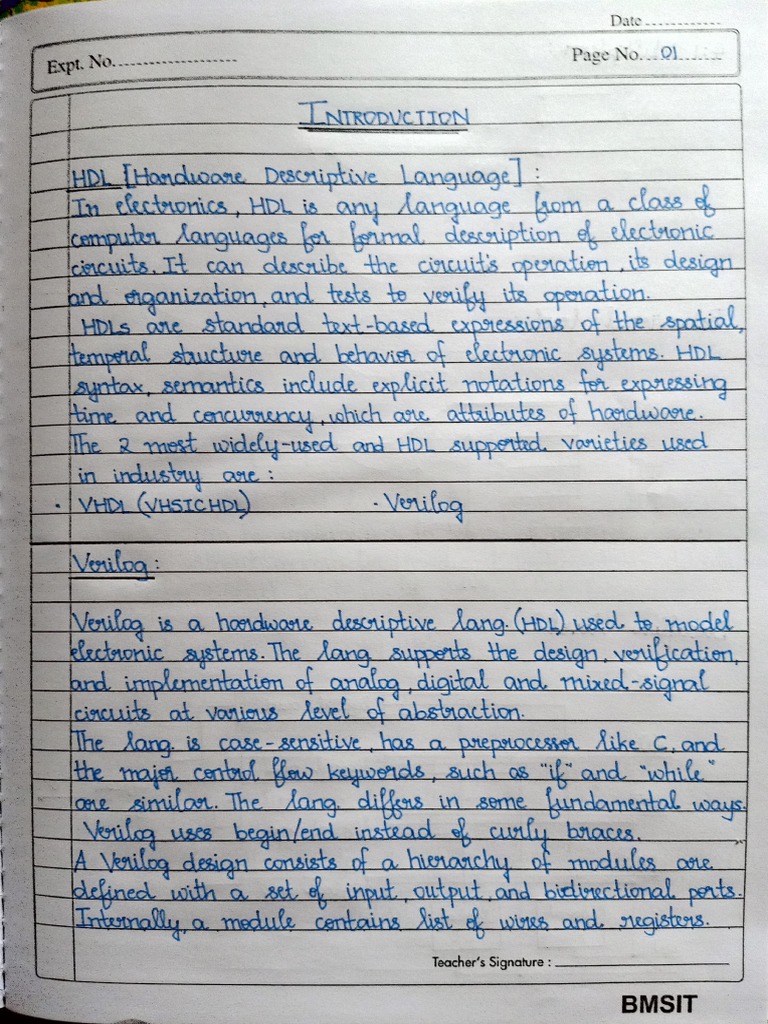 Date ............
Expt. No.....................
Page No. 01
INTRODUCTION
HDL [Hardware Descriptive Language] :
In electronics, HDL is any language from a class of
computer languages for formal description of electronic
circuits. It can describe the circuit's operation, its design
and organization, and tests to verify its operation.
HDLs are standard text-based expressions of the spatial,
temporal structure and behavior of electronic systems. HDL
syntax, semantics include explicit notations for expressing
time and concurrency, which are attributes of hardware.
The 2 most widely-used and HDL supported varieties used
in industry are :
· VHDL (VHSICHDL) · Verilog
Verilog :
Verilog is a hardware descriptive lang. (HDL) used to model
electronic systems. The lang. supports the design, verification,
and implementation of analog, digital and mixed-signal
circuits at various level of abstraction.
The lang. is case-sensitive, has a preprocessor like C, and
the major control flow keywords, such as "if" and "while"
are similar. The lang. differs in some fundamental ways.
Verilog uses begin/end instead of curly braces.
A Verilog design consists of a hierarchy of modules are
defined with a set of input, output, and bidirectional ports.
Internally, a module contains list of wires and registers.
Teacher's Signature : ____________________
BMSIT